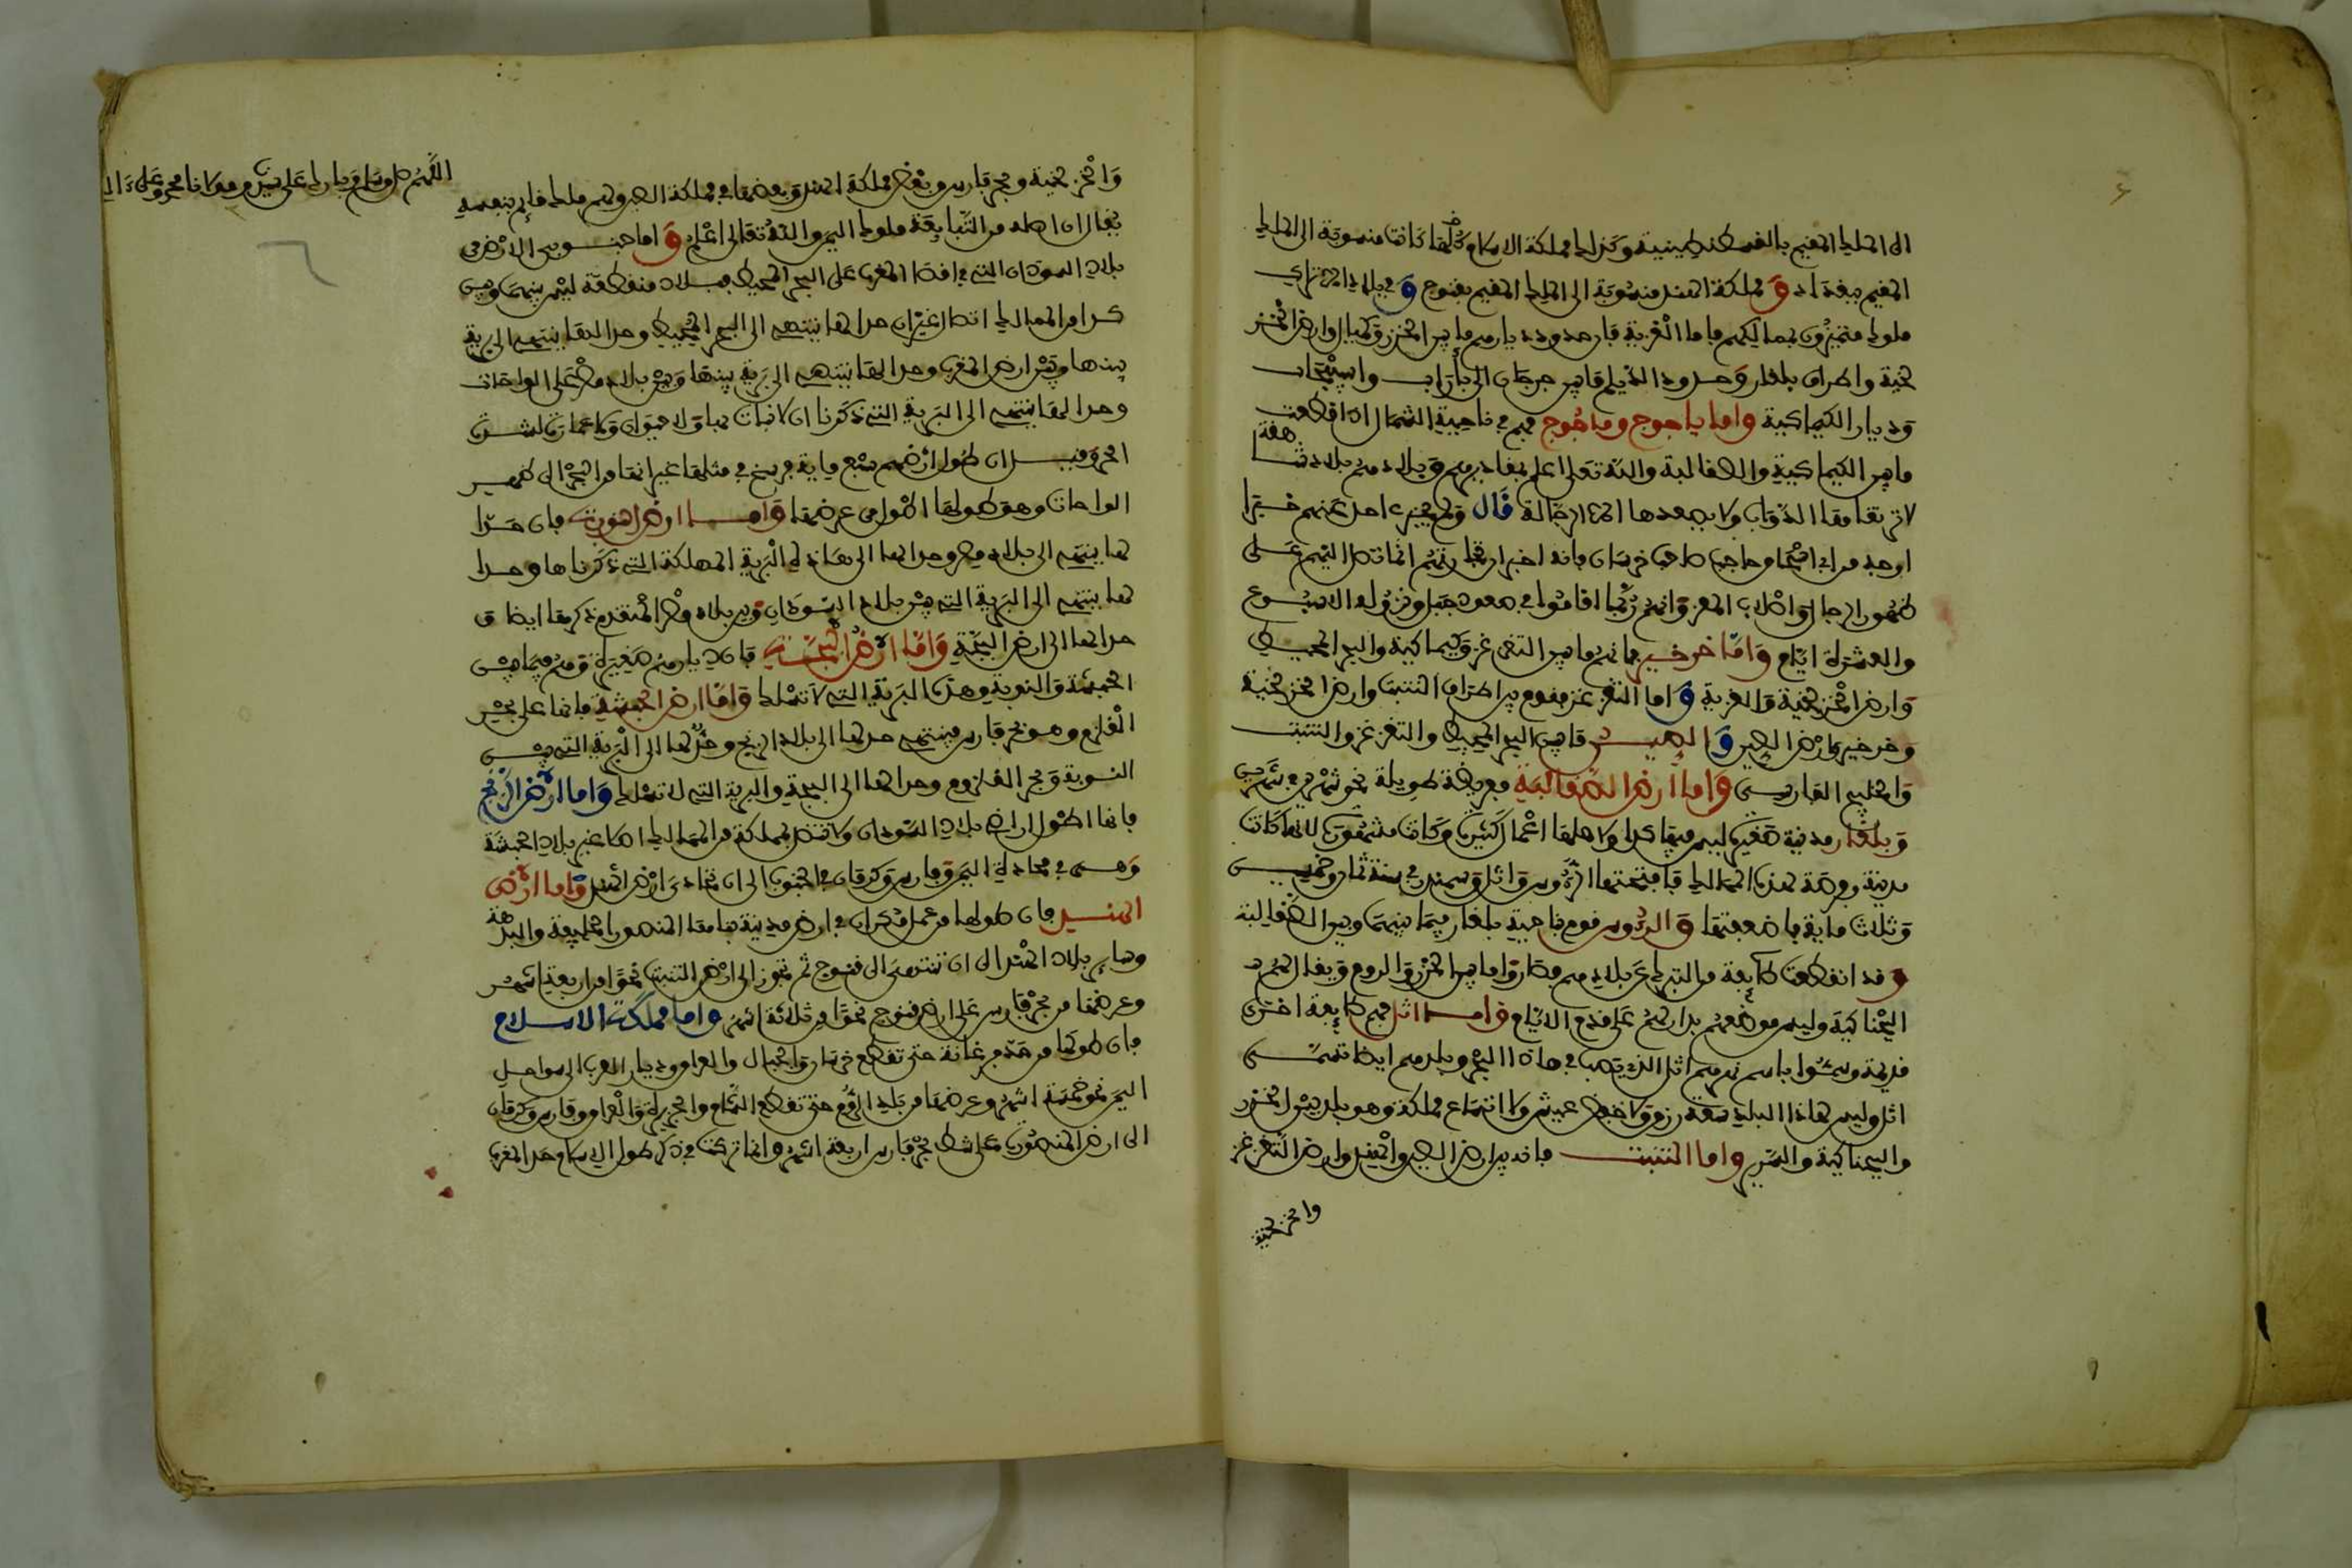 الى الملك المقيم بالقسطنطينية وكذلك مملكة الاسلام كلها كانت منسوبة الى الملك
المقيم ببغداد وَ مملكة الهند منسوبة الى الملك المقيم بقنوج وَ في بلاد الاتراك
ملوك متميزون بممالكهم فاما الغزية فان حدود ديارهم ما بين الخزر وكيماك وارض الخز
لخية واطراف بلغار وحدود الديلم مابين جرجان الى باراب واسبيجاب
وديار الكيماكية واما ياجوج وماجوج فهم في ناحية الشمال اذا قطعت
مابين الكيماكية والصقالبة والله تعلى اعلم بمقاديرهم وبلادهم بلاد شا هقة
لا ترتقا مقا الدواب ولا يصعدها الا الرجالة قال ولم يخبر احد عنهم خبرا
اوجه من ابي اسحق صاحب خرسان فانه اخبر ان تجارتهم انما تصل اليهم على
ظهور الرجال واصلاب المعز وانهم ربما اقاموا في صعود جبل ونزوله الاسبوع
والعشرة ايام واما خرخير فانهم مابين التغزغز وكيماكية والبحر المحيط
وارض الخزلخية والغزية وَ اما التغزغز فقوم بين اطراف التبت وارض الخزلخية
وخرخير وارض الصين وَ الصين ما بين البحر المحيط والتغزغز والتبت
والخليج الفارسي واما ارض الصقالبة فعريضة طويلة نحو شهرين في شهرين
وبلغار مدينة صغيرة ليس فيها كبير ولا هلها اعمال كثيرة وكانت مشهورة لانها كانت
مدينة وفرضة لهذه الممالك فافتتحها الروس واتل وسمندر في سنة ثمان وخمسين
وثلاث ماية فاضعفتها وَ الروس قوم ناحية بلغار فيما بينهم وبين الصقالبة
وقد انقطعت طايفة من الترك عن بلادهم فصاروا مابين الخزر والروم ويقال لهم
البجناكية وليس موضعهم بدار لهم على قديم الايام واما اتل فهم طايفة اخرى
قديمة وسموا باسم نهرهم اتل الذي يصب في هاذا البحر وبلدهم ايضا تسمى
اتل وليس هاذا البلد سعة رزق ولا خفض عيش ولا اتساع مملكة وهو بلد بين الخزر
والبجناكية والسرير واما التبت فانه بين ارض الصين والهند وارض التغزغز
والخزلخية
والخزلخية وبحر فارس وبعض مملكة الهند وبعضها في مملكة الصين ولهم ملك قايم بنفسه
يقال ان اصله من التبابعة ملوك اليمن والله تعالى اعلم وَ اما جنوبي الارض من
بلاد السودان التي في اقصا المغرب على البحر المحيط فبلاد منقطعة ليس بينها وبين
شي من الممالك اتصال غير ان حدا لها ينتهي الى البحر المحيط وحدا لها ينتهي الى برية
بينها وبين ارض المغرب وحدا لها ينتهي الى برية بينها وبين بلاد مصر على الواحات
وحدا لها ينتهي الى البرية التي ذكرنا ان لا نبات بها ولا حيوان ولا عمارة لشدة
الحر وقيل ان طول ارضهم سبع ماية فرسخ في مثلها غير انها من البحر الى ظهر
الواحات وهو طولها اطول من عرضها واما ارض النوبة فان حدا
لها ينتهي الى بلاد مصر وحدا لها الى هاذه البرية المهلكة التي ذكرناها وحدا
لها ينتهي الى البرية التي بين بلاد السودان وبين بلاد مصر المتقدم ذكرها ايضا و
حدا لها الى ارض البجة واما ارض البجة فان ديارهم صغيرة وهم فيما بين
الحبشة والنوبة وهذه البرية التي لا تسلك واما ارض الحبشة فانها على بحر
القلزم وهو بحر فارس فينتهي حد لها الى بلاد الزنج وحد لها الى البرية التي بين
النوبة وبحر القلزم وحدا لها الى البجة والبرية التي لا تسلك واما ارض الزنج
فانها اطول اراضي بلاد السودان ولا تتصل بمملكة من الممالك الا غير بلاد الحبشة
وهي في محاذاة اليمن وفارس وكرمان في الجنوب الى ان تحاذي ارض الهند واما ارض
الهند فان طولها من عمل مكران في ارض مدينة مقامها المنصورة المليبة والبدهة
وساير بلاد الهند الى ان تنتهي الى قنوج ثم تجوز الى ارض التبت نحوا من اربعة اشهر
وعرضها من بحر فارس على ارض قنوج نحوا من ثلاثة اشهر واما مملكة الاسلام
فان طولها من حد فرغانة حتى تقطع خرسان والجبال والعراق وديار العرب الى سواحل
اليمن نحو خمسة اشهر وعرضها من بلد الروم حتى تقطع الشام والجزيرة والعراق وفارس وكرمان
الى ارض المنصورة على شط بحر فارس اربعة اشهر وانما تركت في ذكر طول الاسلام حد المغرب
اللهم صل وسلم وبارك على سيدنا ومولانا محمد وعلى ءاله